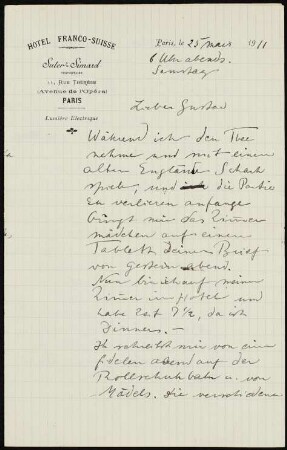 HOTEL FRANCO-SUISSE
Suter & Simard
11, Rue Thérèse
(Avenue de l'Opéra)
PARIS
Lumière Electrique
Paris, le 25 mars 1911
6 Uhr abends.
Samstag
Lieber Gustav
Während ich den Thee
nehme und mit einem
alten Engländer Schach
spiele, und die Partie
zu verlieren anfange
bringt mir das Zimmer
mädchen auf einem
Tablett Deinen Brief
von gestern abend.
Nun bin ich auf meinem
Zimmer im Hotel und
habe Zeit 7½, da ist
Dinner. —
Du schreibst mir von einem
fidelen abend auf der
Rollschuhbahn u. von
Mädels. Die verschiedenen